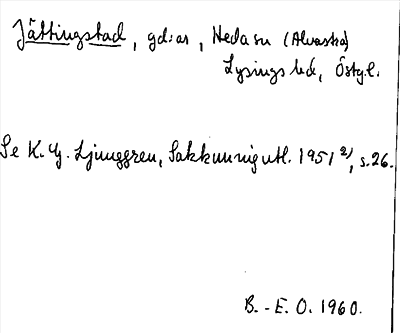 Jättingstad, gd:ar, Heda sn (Alvastra)
Lysings hd, Östgl.
Se K. G. Ljunggren, Sakkunnigutl. 1951 2), s. 26.
B.-E. O. 1960.